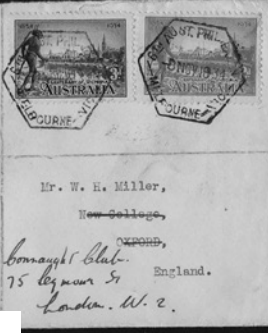 AUSTRALIA AUSTRALIA
MELBOURNE
MELBOURNE
Mr. W. H. Miller,
New College,
OXFORD,
England.
Connaught Club.
75 Seymour St
London. W. 2.